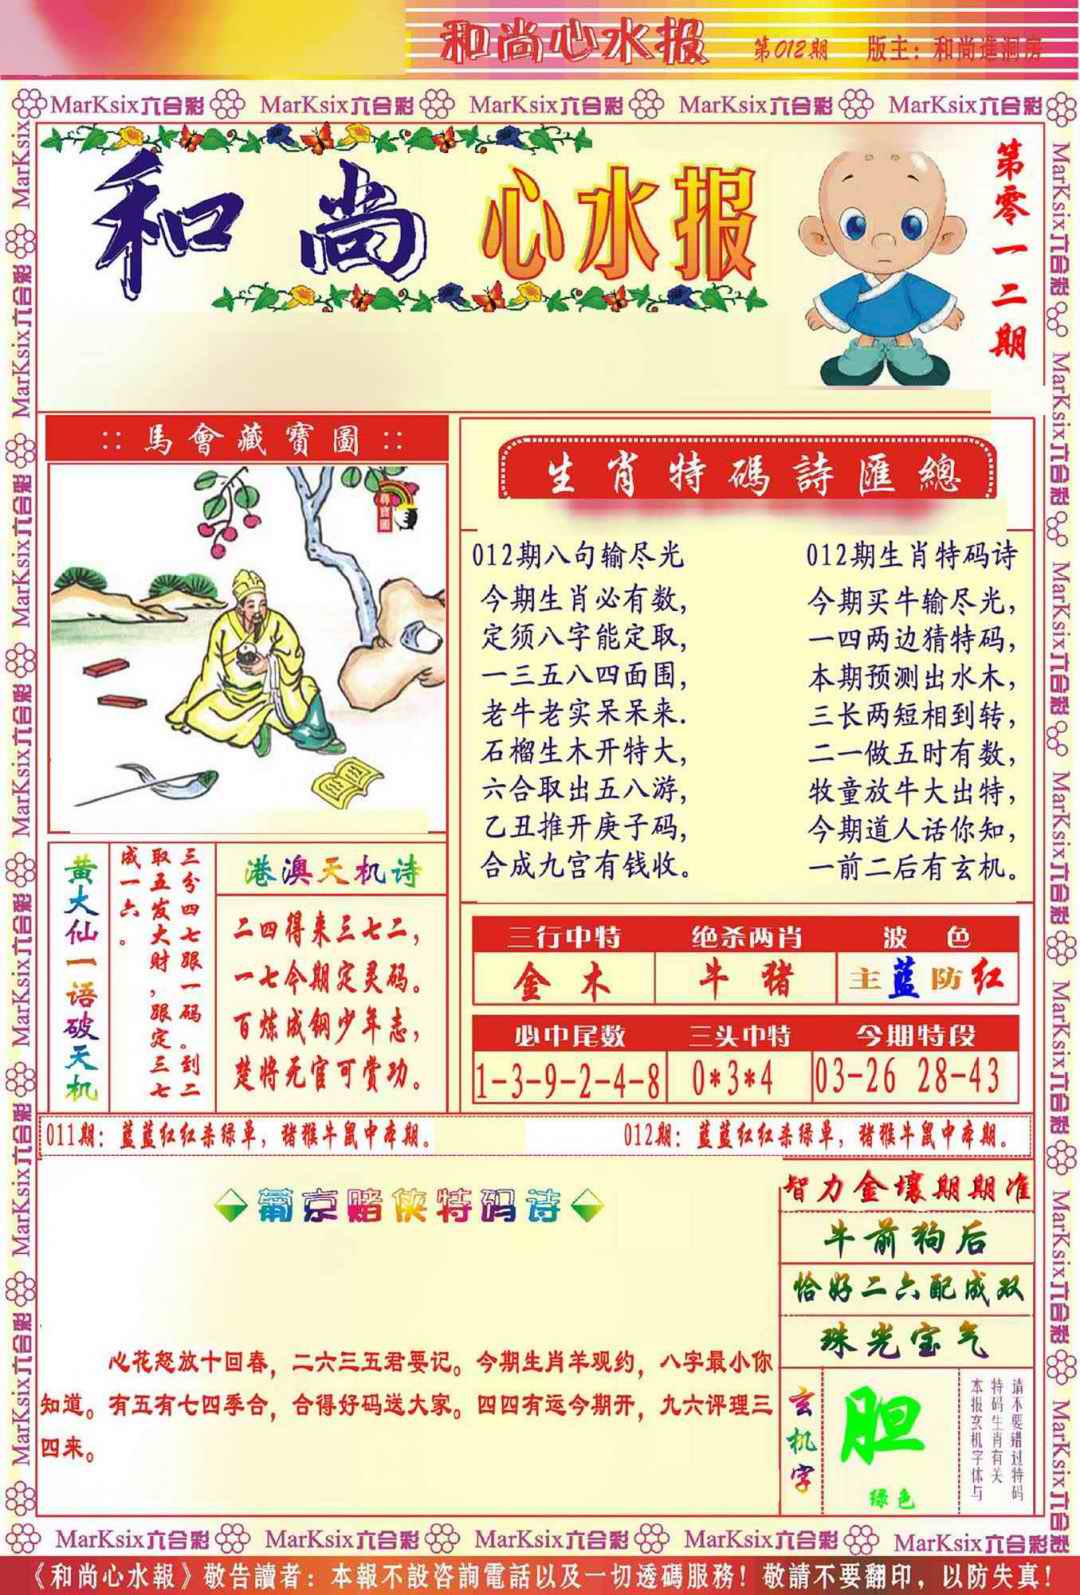 和尚心水报 第012期 版主：和尚進洞房
MarKsix六合彩 MarKsix六合彩 MarKsix六合彩 MarKsix六合彩 MarKsix六合彩
和尚心水报
第零一二期
::馬會藏寶圖::
尋寶圖
生肖特碼詩匯總
012期八句输尽光
今期生肖必有数,
定须八字能定取,
一三五八四面围,
老牛老实呆呆来.
石榴生木开特大,
六合取出五八游,
乙丑推开庚子码,
合成九宫有钱收。
012期生肖特码诗
今期买牛输尽光,
一四两边猜特码,
本期预测出水木,
三长两短相到转,
二一做五时有数,
牧童放牛大出特,
今期道人话你知,
一前二后有玄机。
黄大仙一语破天机
三分四七跟一码。到二
取五发大财,跟定三七
成一六。
港澳天机诗
二四得来三七二,
一七今期定灵码。
百炼成钢少年志,
楚将无官可赏功。
三行中特 绝杀两肖 波色
金木 牛猪 主蓝防红
必中尾数 三头中特 今期特段
1-3-9-2-4-8 0*3*4 03-26 28-43
011期：蓝蓝红红杀绿单，猪猴牛鼠中本期。 012期：蓝蓝红红杀绿单，猪猴牛鼠中本期。
葡京赌侠特码诗
心花怒放十回春，二六三五君要记。今期生肖羊观约，八字最小你
知道。有五有七四季合，合得好码送大家。四四有运今期开，九六评理三
四来。
智力金壤期期准
牛前狗后
恰好二六配成双
珠光宝气
玄机字
胆
绿色
请不要错过特码
特码生肖有关
本报玄机字体与
MarKsix六合彩 MarKsix六合彩 MarKsix六合彩 MarKsix六合彩 MarKsix六合彩
《和尚心水報》敬告讀者：本報不設咨詢電話以及一切透碼服務！敬請不要翻印，以防失真！